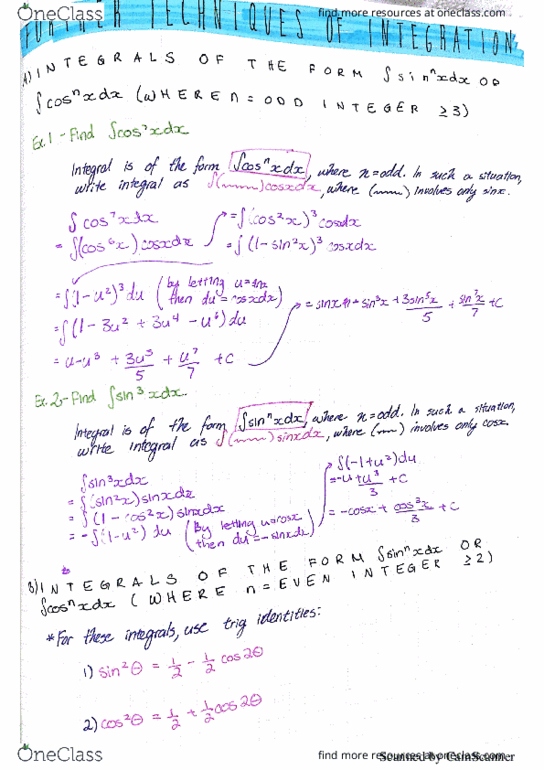 OneClass
find more resources at oneclass.com
FURTHER TECHNIQUES OF INTEGRATION
A) INTEGRALS OF THE FORM ∫sinⁿxdx OR
∫cosⁿxdx (WHERE n = ODD INTEGER ≥3)
Ex.1 - Find ∫cos⁷xdx
Integral is of the form ∫cosⁿxdx, where n=odd. In such a situation,
write integral as ∫(~~~)cosxdx, where (~~~) involves only sinx.
∫cos⁷xdx
= ∫(cos⁶x)cosxdx
= ∫(cos²x)³cosxdx
= ∫(1-sin²x)³cosxdx
= ∫(1-u²)³du (by letting u=sinx then du=cosxdx)
= ∫(1-3u²+3u⁴-u⁶)du
= u-u³ + 3u⁵/5 + u⁷/7 + C
sin³x + 3sin⁵x/5 + sin⁷x/7 + C
Ex.2 - Find ∫sin³xdx.
Integral is of the form ∫sinⁿxdx, where n=odd. In such a situation,
write integral as ∫(~~~)sinxdx, where (~~~) involves only cosx.
∫sin³xdx
= ∫(sin²x)sinxdx
= ∫(1-cos²x)sinxdx
= -∫(1-u²)du (By letting u=cosx then du=-sinxdx)
∫(-1+u²)du
= -u+u³/3 + C
= -cosx + cos³x/3 + C
B) INTEGRALS OF THE FORM ∫sinⁿxdx OR
∫cosⁿxdx (WHERE n=EVEN INTEGER ≥2)
*For these integrals, use trig identities:
1) sin²θ = 1/2 - 1/2 cos2θ
2) cos²θ = 1/2 + 1/2 cos2θ
OneClass
find more resources at oneclass.com
Scanned by CamScanner